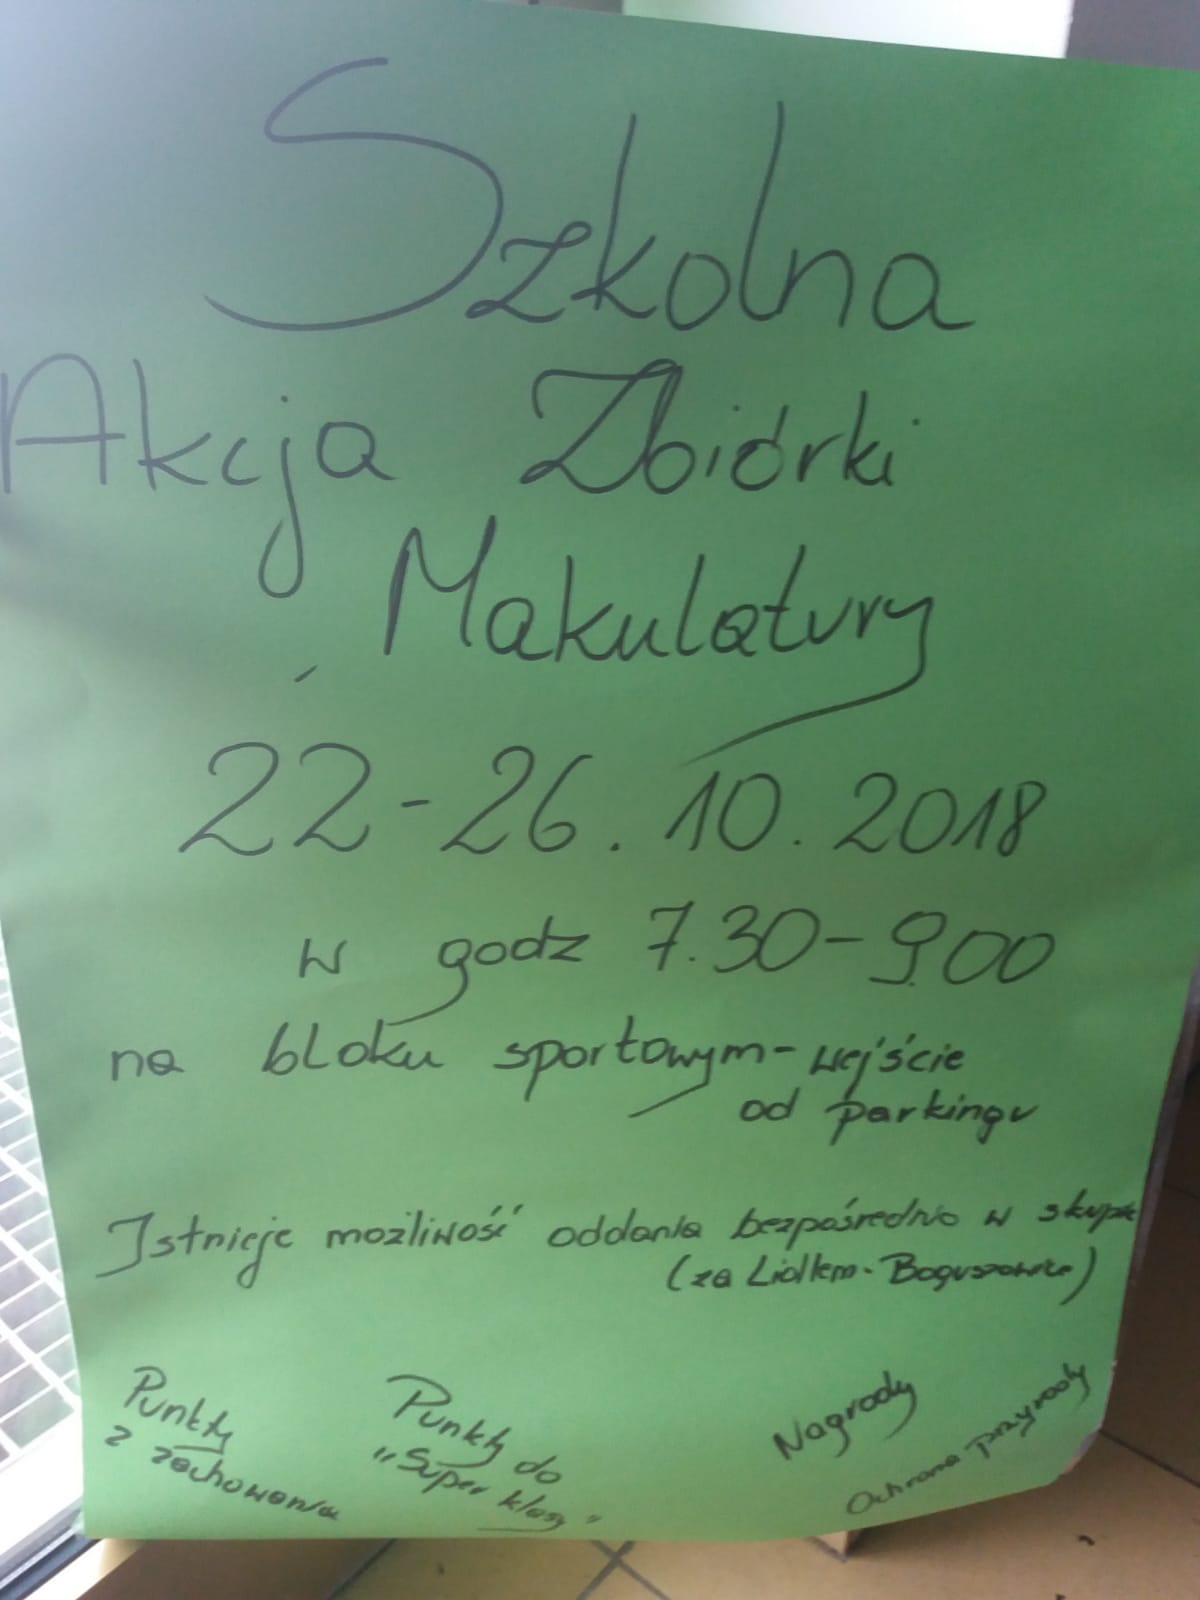 Szkolna
Akcja Zbiórki
Makulatury
22-26.10.2018
w godz 7.30-9.00
na bloku sportowym- wejście
od parkingu
Istnieje możliwość oddania bezpośrednio w skupie
(za Lidlem- Boguszowice)
Punkty
z zachowania
Punkty do
"Super klasy"
Nagrody
Ochrona przyrody